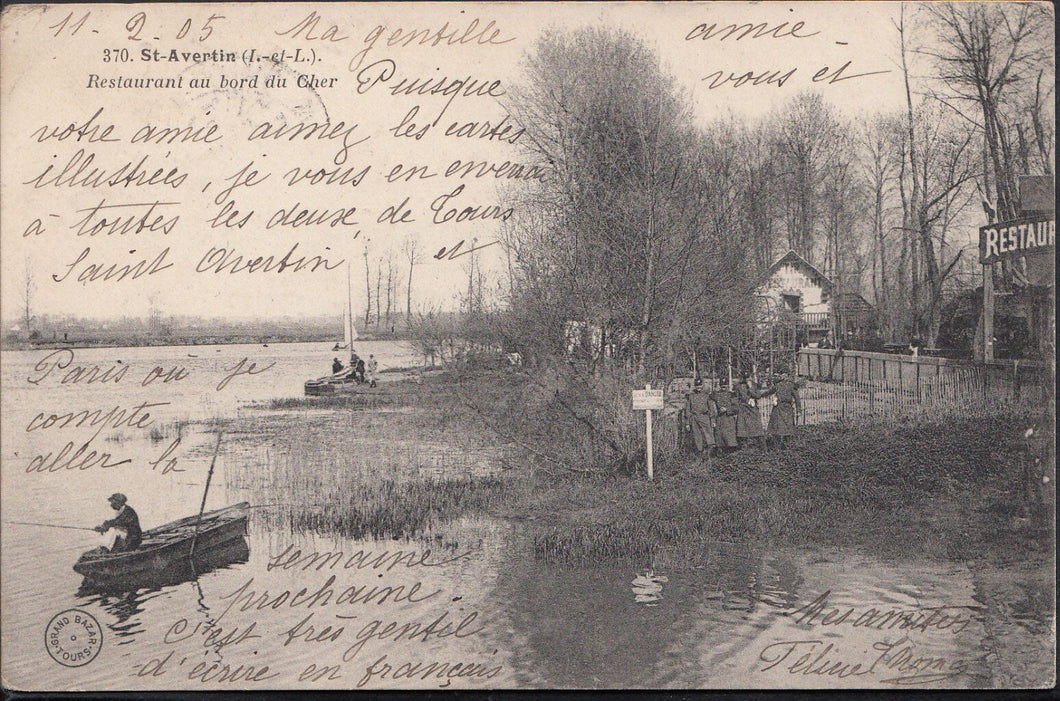 11-2-05 Ma gentille amie
370. St-Avertin (I.-et-L.).
Restaurant au bord du Cher
Puisque vous et
votre amie aimez les cartes
illustrées, je vous en envenai
à toutes les deux, de Tours
et
Saint Avertin
RESTAUR
Paris où je
compte
aller la
semaine
prochaine
C'est très gentil
d'écrire en français
Mes amitiés
GRAND BAZAR
TOURS